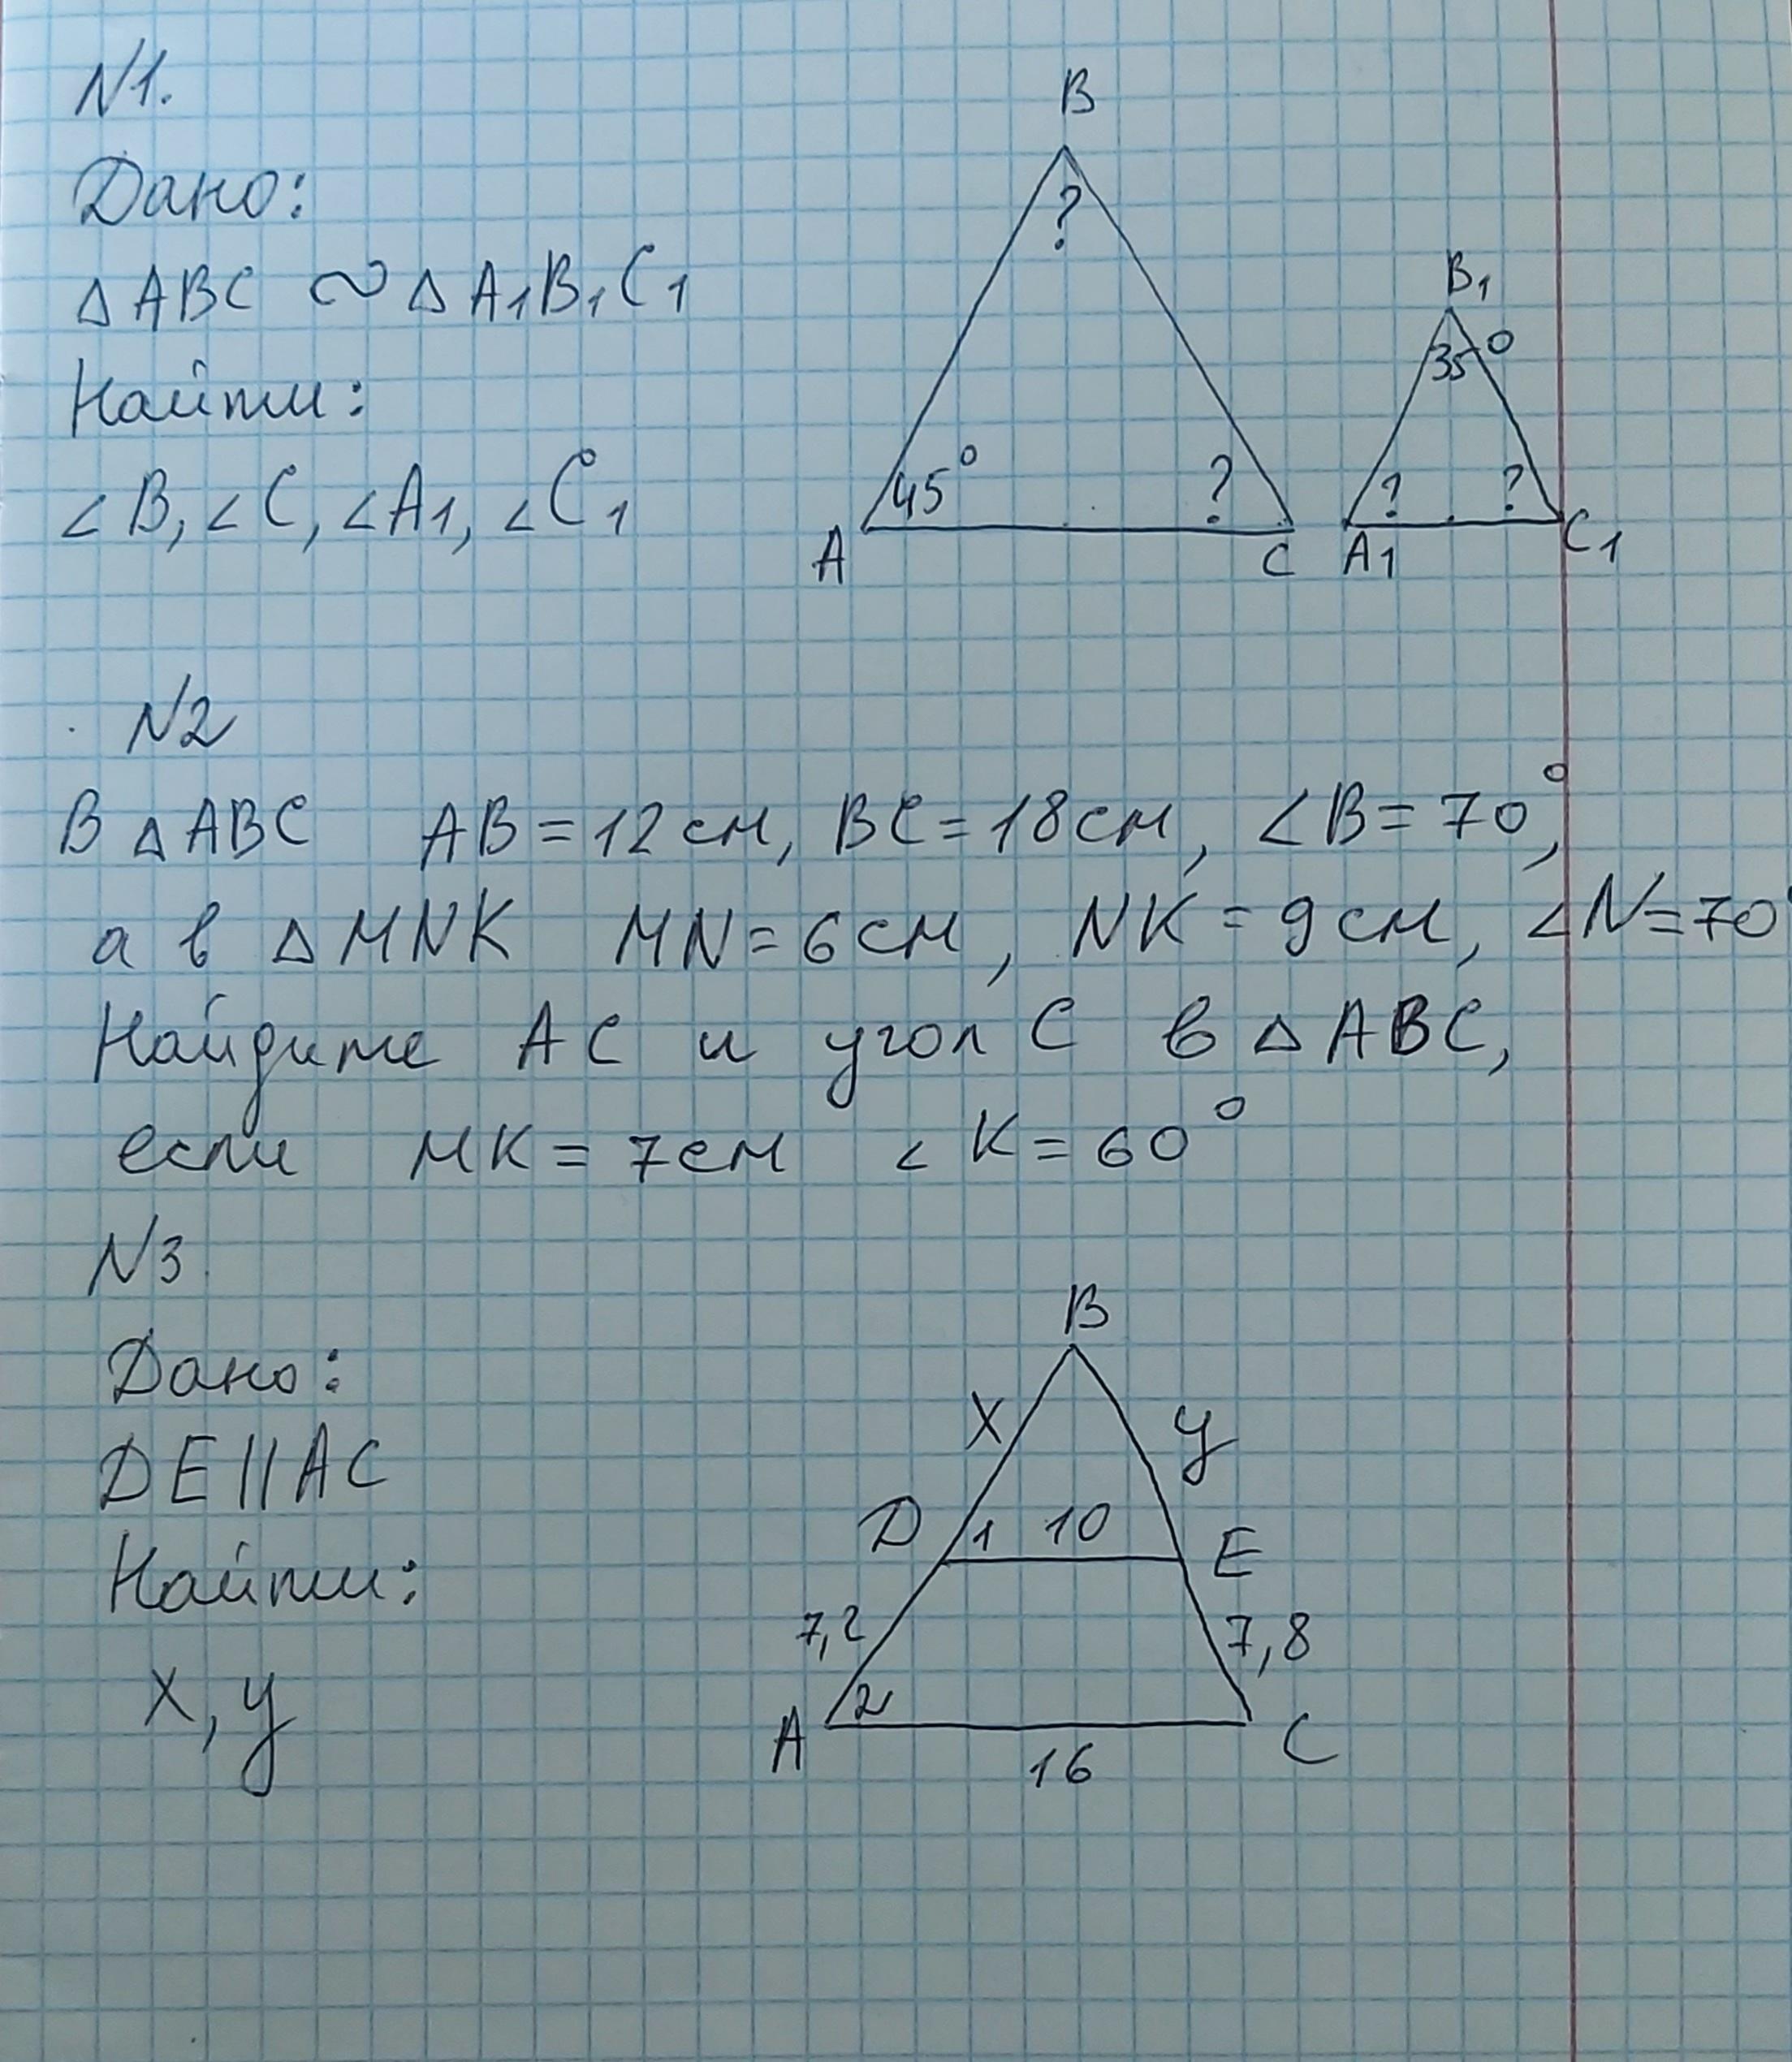 N1.
Дано:
△ABC ∾ △A₁B₁C₁
Найти:
∠B, ∠C, ∠A₁, ∠C₁
B
?
45°
?
A
C
B₁
35°
?
?
A₁
C₁
N2
В △ABC AB = 12 см, BC = 18 см, ∠B = 70°,
а в △MNK MN = 6 см, NK = 9 см, ∠N = 70°
Найдите AC и угол C в △ABC,
если MK = 7 см ∠K = 60°
N3.
Дано:
DE || AC
Найти:
x, y
B
x
y
D
1
10
E
7,2
7,8
2
A
C
16